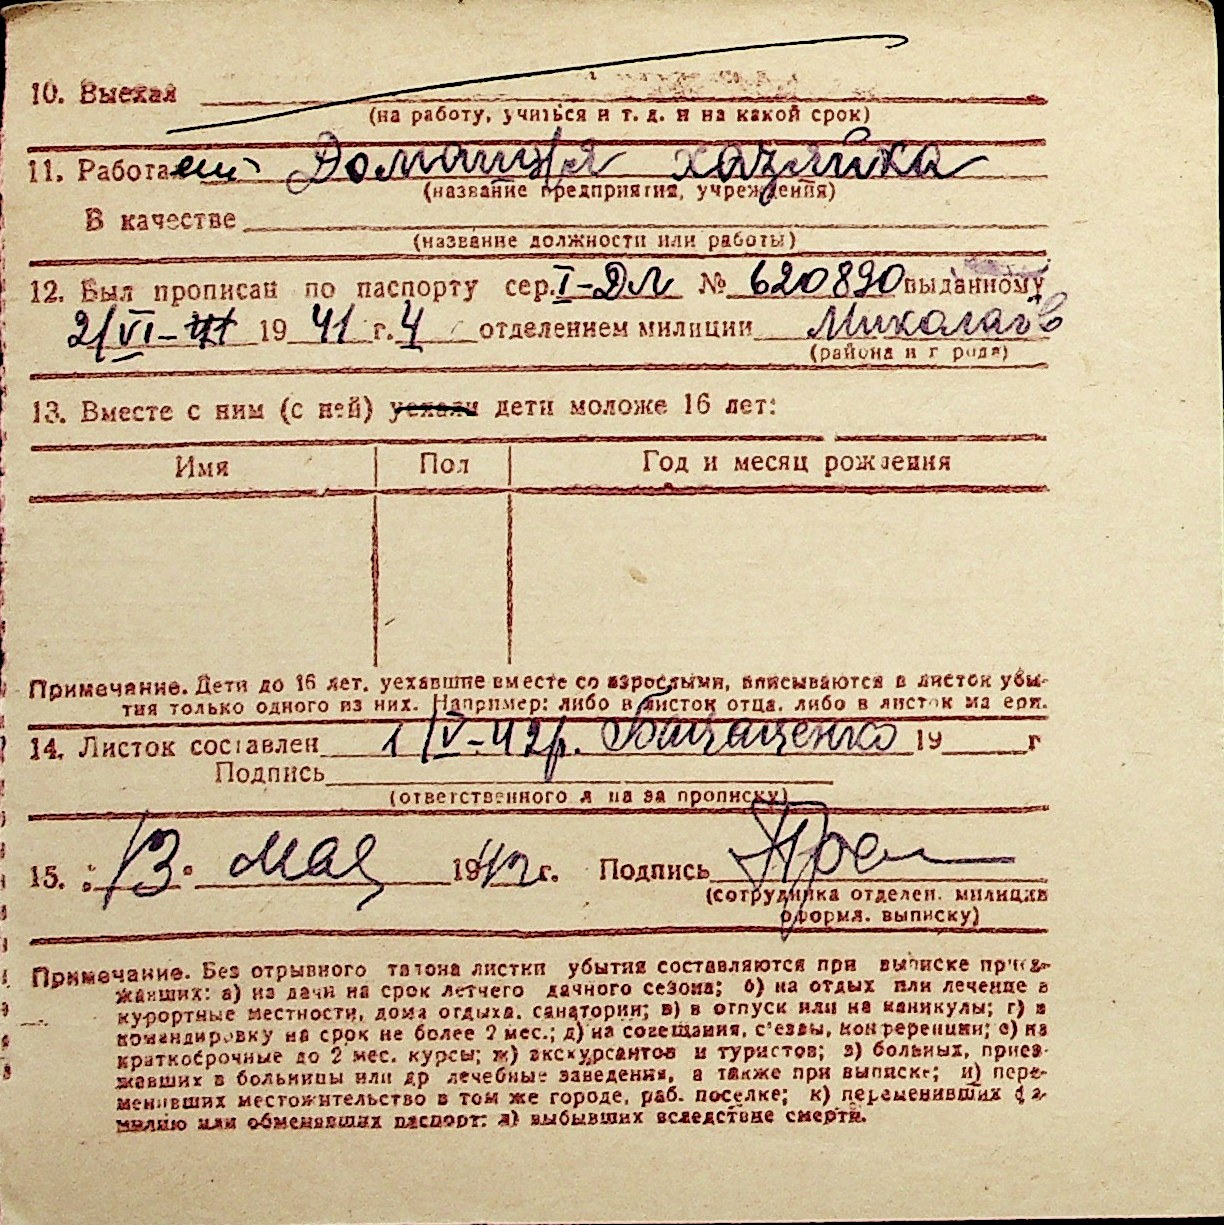 10. Выехал
(на работу, учиться и т. д. и на какой срок)
11. Работает Домашня хазяйка
(название предприятия, учреждения)
В качестве
(название должности или работы)
12. Был прописан по паспорту сер. I-ДЛ № 620890 выданному
2/VI- 19 41 г. 4 отделением милиции Миколаїв
(района и города)
13. Вместе с ним (с ней) уехали дети моложе 16 лет:
Имя Пол Год и месяц рождения
Примечание. Дети до 16 лет, уехавшие вместе со взрослыми, вписываются в листок убы-
тия только одного из них. Например: либо в листок отца, либо в листок матери.
14. Листок составлен 1/V-42р. 19 г
Подпись
(ответственного лица за прописку)
15. "13" мая 1942 г. Подпись
(сотрудника отделен. милиции
оформл. выписку)
Примечание. Без отрывного талона листки убытия составляются при выписке приез-
жавших: а) из дачи на срок летнего дачного сезона; б) на отдых или лечение в
курортные местности, дома отдыха, санатории; в) в отпуск или на каникулы; г) в
командировку на срок не более 2 мес.; д) на совещания, с'езды, конференции; е) на
краткосрочные до 2 мес. курсы; ж) экскурсантов и туристов; з) больных, приез-
жавших в больницы или др лечебные заведения, а также при выписке; и) пере-
менивших местожительство в том же городе, раб. поселке; к) переменивших фа-
милию или обменявших паспорт; л) выбывших вследствие смерти.